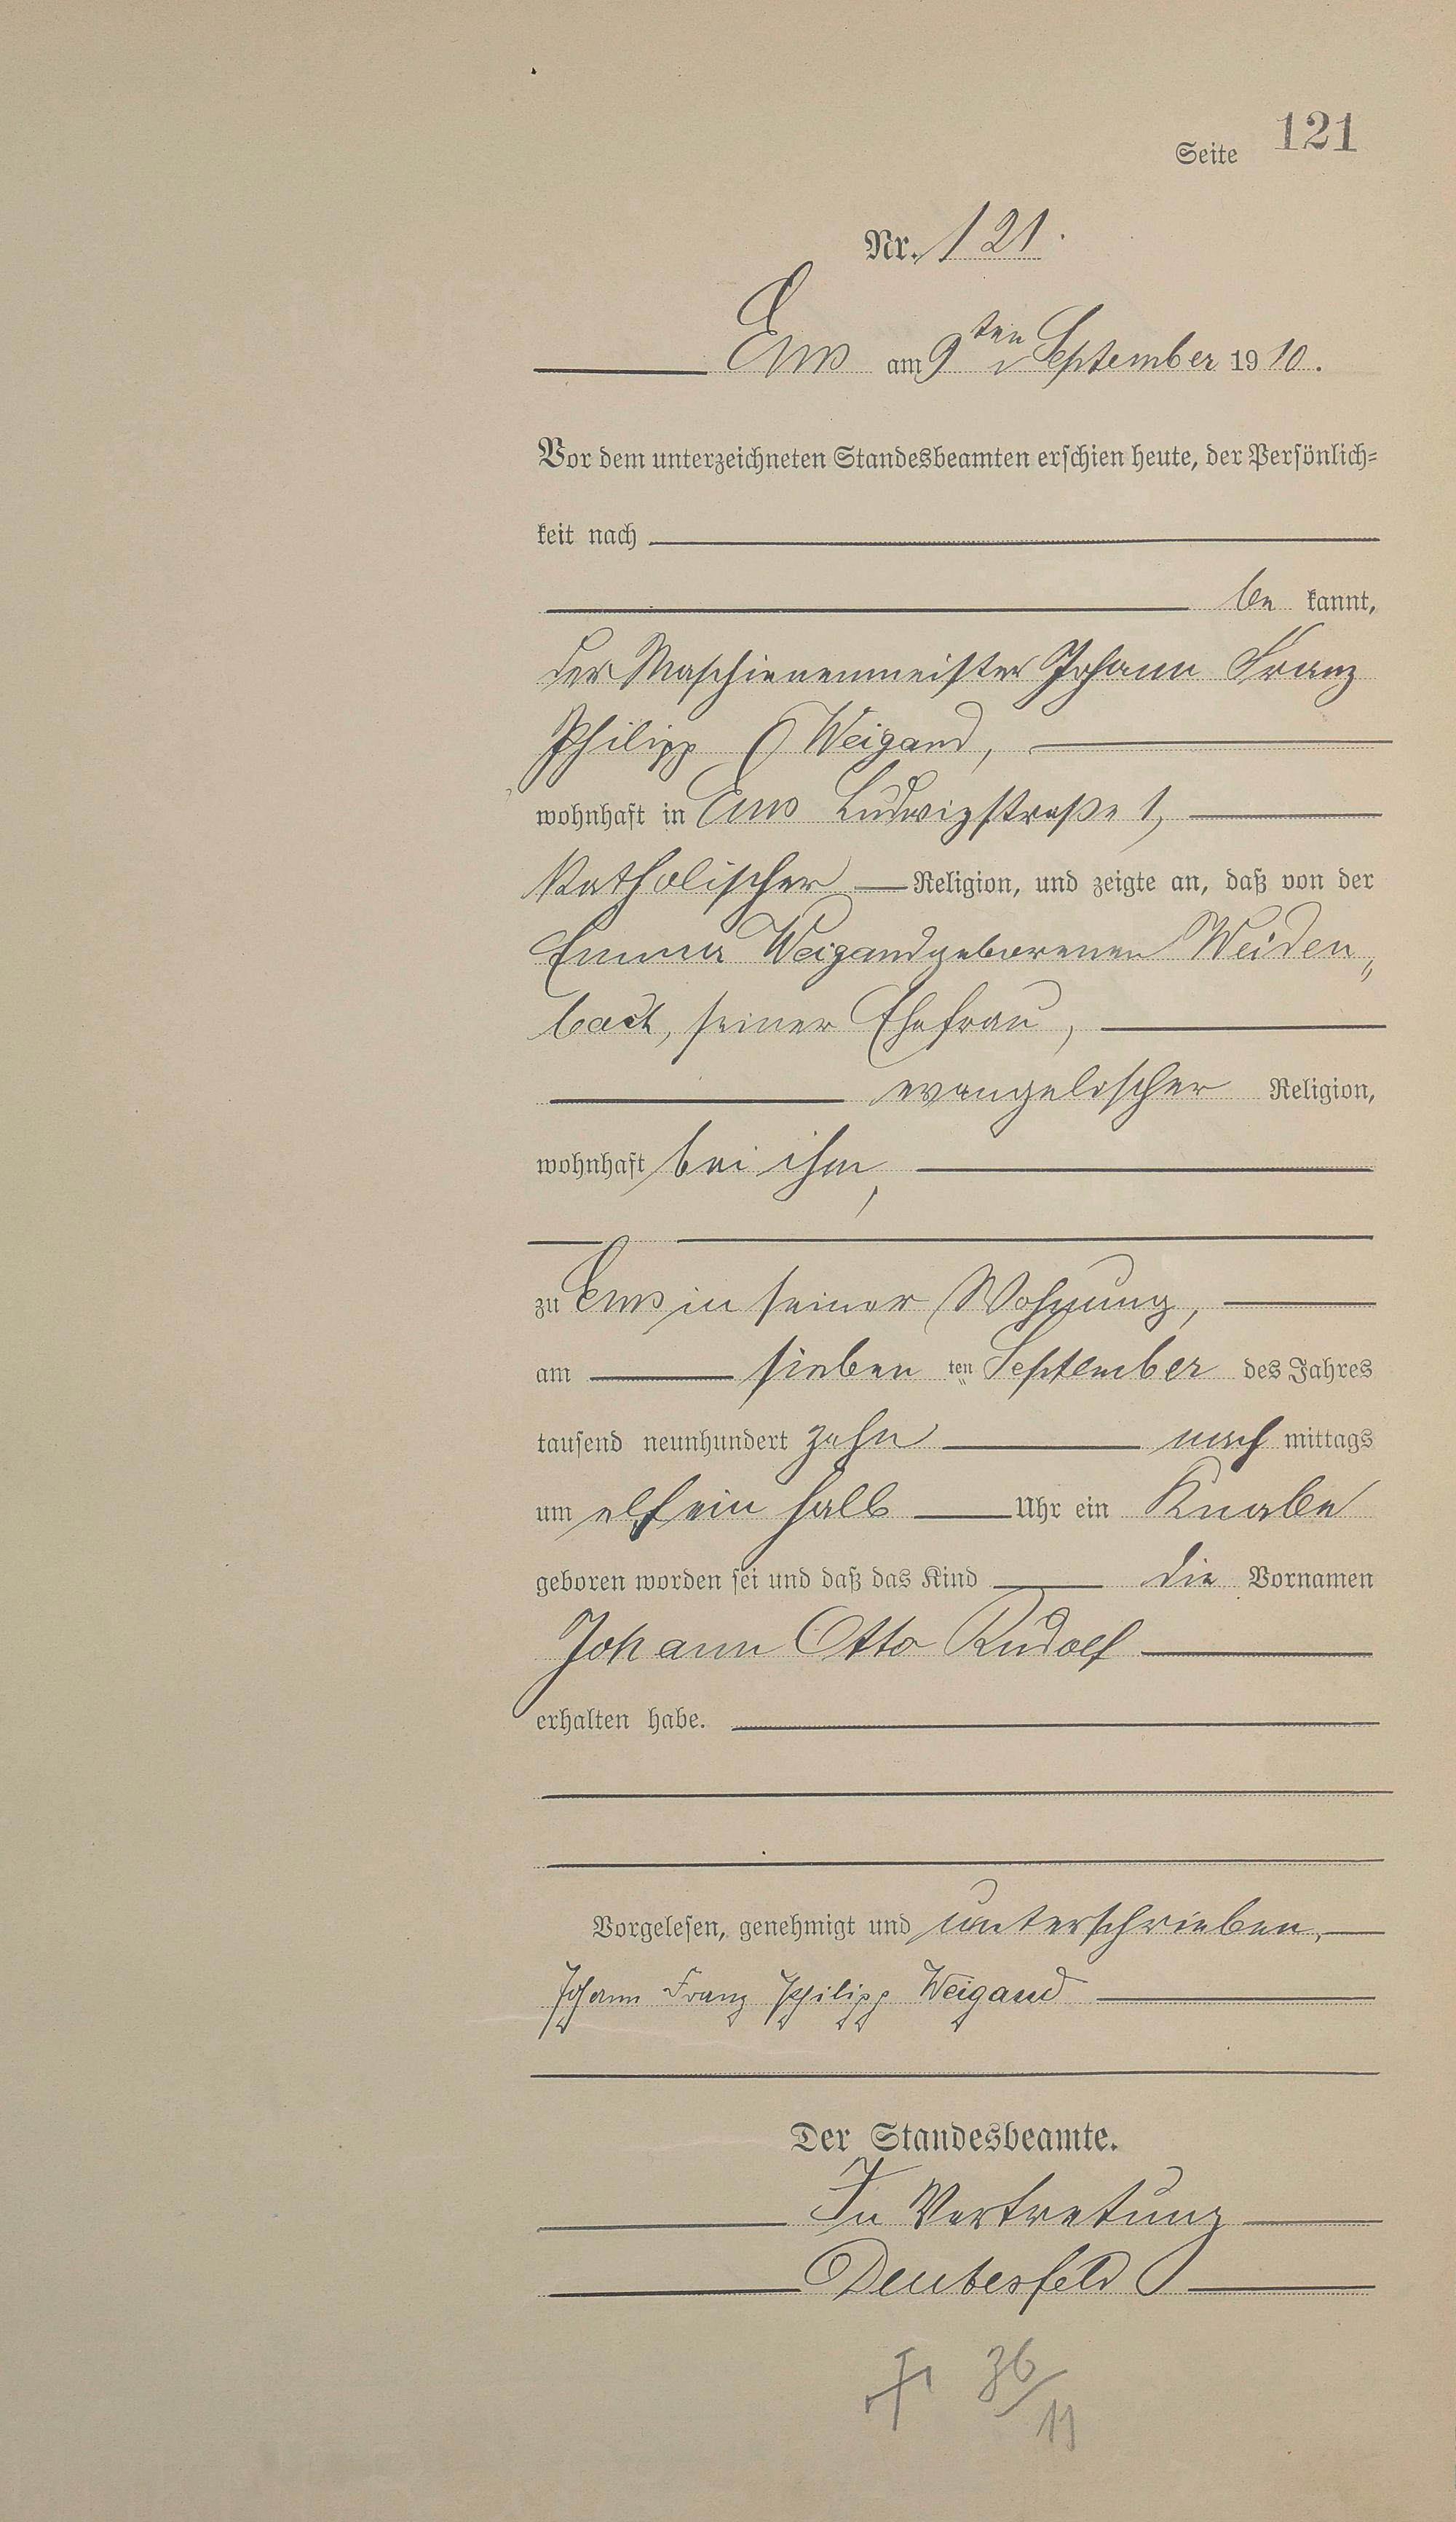 Seite 121
Nr. 121.
Ems am 9ten September 1910.
Vor dem unterzeichneten Standesbeamten erschien heute, der Persönlich-
keit nach
be kannt,
der Maschienenmeister Johann Franz
Philipp Weigand,
wohnhaft in Ems Ludwigstraße 1,
katholischer Religion, und zeigte an, daß von der
Emma Weigand geborenen Weiden„
bach, seiner Ehefrau,
evangelischer Religion,
wohnhaft bei ihm,
zu Ems in seiner Wohnung,
am sieben ten September des Jahres
tausend neunhundert zehn nach mittags
um elf ein halb Uhr ein Knabe
geboren worden sei und daß das Kind die Vornamen
Johann Otto Rudolf
erhalten habe.
Vorgelesen, genehmigt und unterschrieben.
Johann Franz Philipp Weigand
Der Standesbeamte.
In Vertretung
Deutesfeld
† 36/11